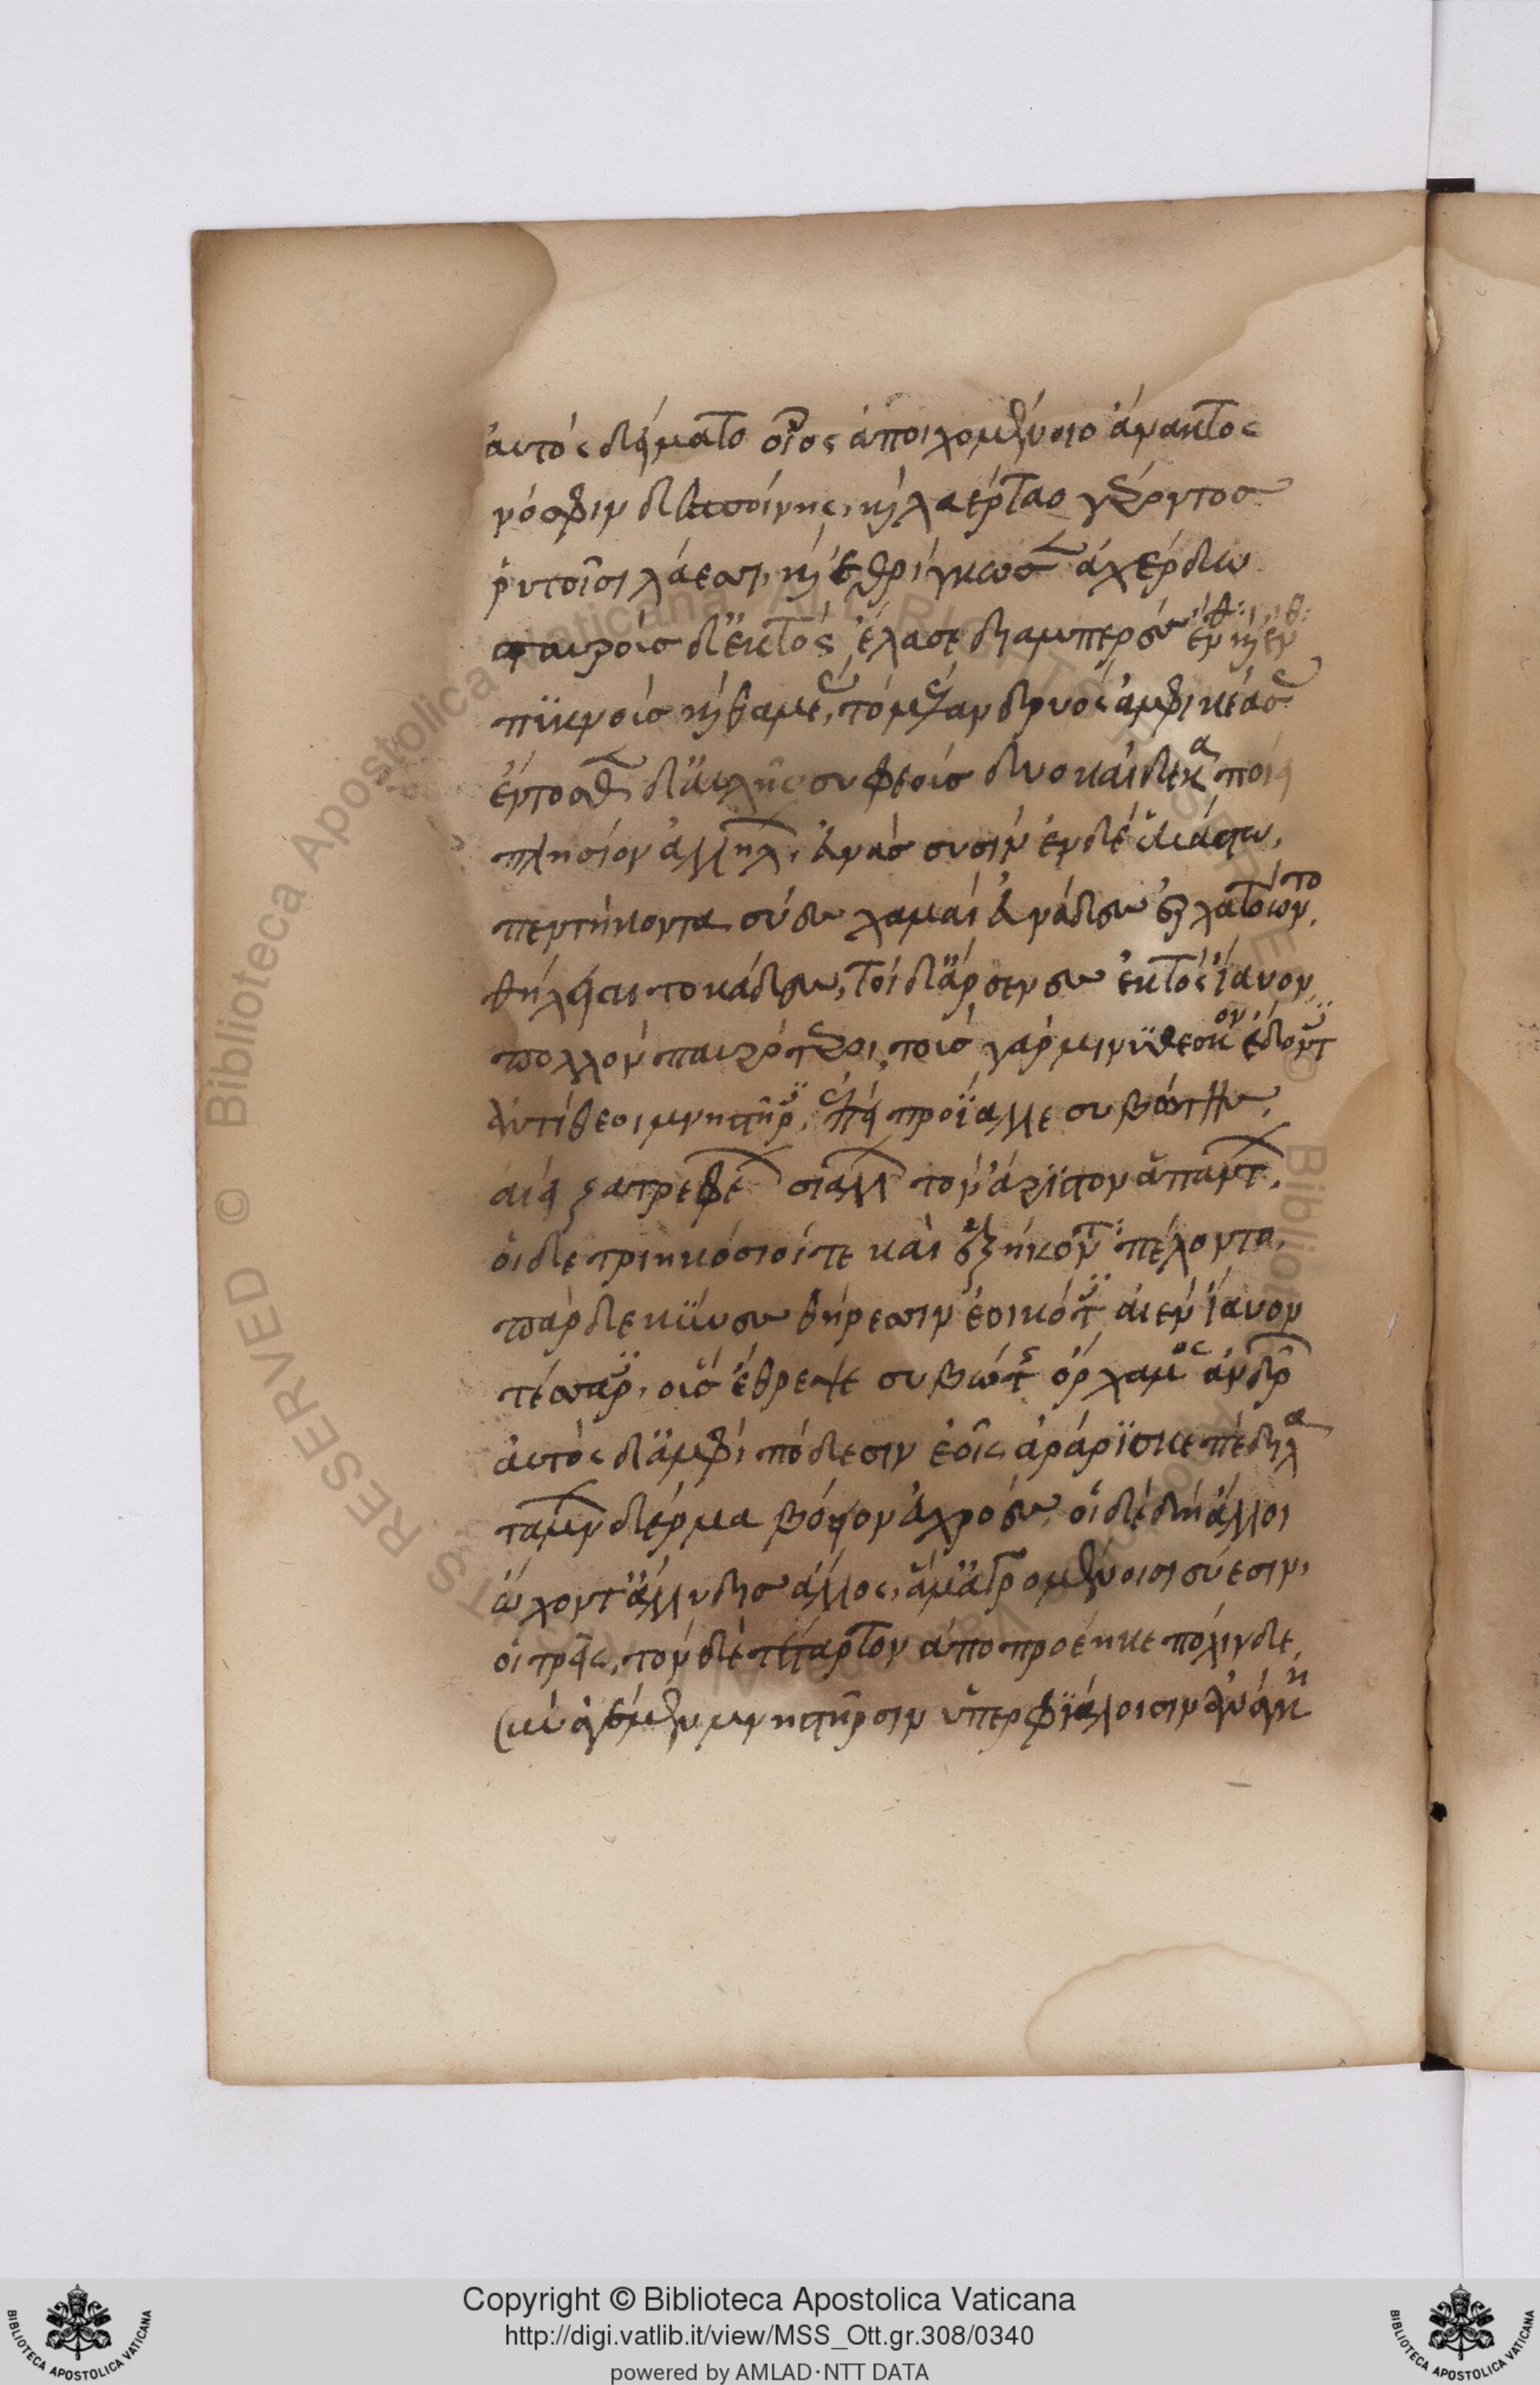 αὐτὸς δείματο οἶος ἀποιχομένοιο ἄνακτος
νόσφιν δεσποίνης, καὶ λαέρταο γέροντος
ῥυτοῖσι λάεσσι, καὶ ἐθρίγκωσεν ἀχέρδω
σταυροὺς δ' ἐκτὸς ἔλασε διαμπερὲς ἔνθ: καὶ ἔνθ:
πυκνοὺς καὶ θαμέας, τὸ μέλαν δρυὸς ἀμφικεάσας
ἔντοσθεν δ' αὐλῆς συφεοὺς δυοκαίδεκα ποίει
πλησίον ἀλλήλων, εὐνὰς συσὶν ἐν δὲ ἑκάστω,
πεντήκοντα σύες χαμαὶ εὐνάδες ἐρχατόωντο,
θήλειαι τοκάδες, τοὶ δ' ἄρσενες ἐκτὸς ἴαυον
πολλὸν παυρότεροι, τοὺς γὰρ μινύθεσκον ἔδοντες
ἀντίθεοι μνηστῆρες, ἐπεὶ προΐαλλε συβώτης,
αἰεὶ ζατρεφέων σιάλων τὸν ἄριστον ἁπάντων,
οἱ δὲ τριηκόσιοί τε καὶ ἑξήκοντα πέλοντο,
πὰρ δὲ κύνες θήρεσσιν ἐοικότες αἰὲν ἴαυον
τέσσαρες, οὓς ἔθρεψε συβώτης ὄρχαμος ἀνδρῶν
αὐτὸς δ' ἀμφὶ πόδεσιν ἑοῖς ἀράρισκε πέδιλα
τάμνων δέρμα βόειον ἐυχροές, οἱ δὲ δὴ ἄλλοι
ὤχοντ' ἄλλυδις ἄλλος, ἅμ' ἀγρομένοισι σύεσιν,
οἱ τρεῖς, τὸν δὲ τέταρτον ἀποπροέηκε πόλινδε,
σῦν ἀγέμεν μνηστῆρσιν ὑπερφιάλοισιν ἀνάγκη
Copyright © Biblioteca Apostolica Vaticana
http://digi.vatlib.it/view/MSS_Ott.gr.308/0340
powered by AMLAD·NTT DATA